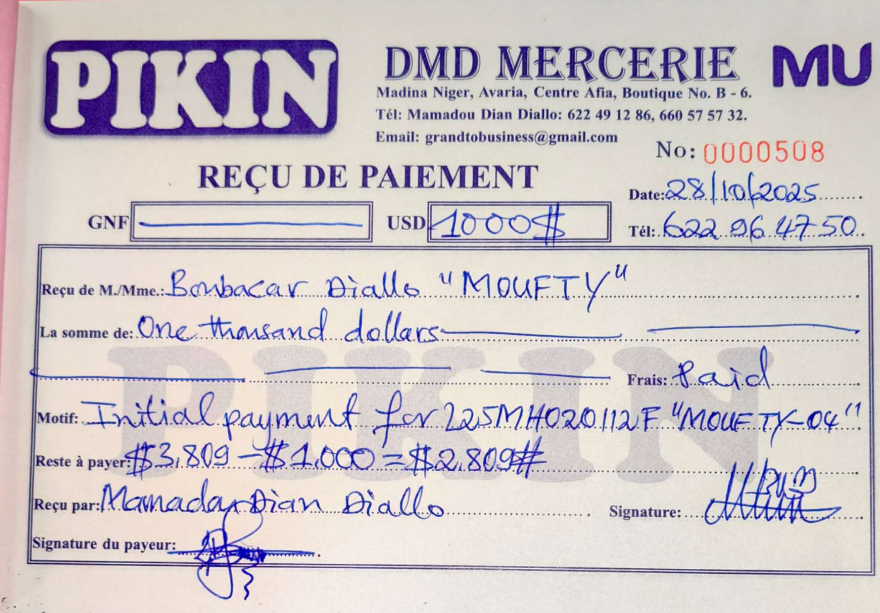 PIKIN
DMD MERCERIE
MU
Madina Niger, Avaria, Centre Afia, Boutique No. B - 6.
Tél: Mamadou Dian Diallo: 622 49 12 86, 660 57 57 32.
Email: grandtobusiness@gmail.com
No: 0000508
REÇU DE PAIEMENT
Date: 28/10/2025
GNF
USD 1000$
Tél: 622 96 47 50
Reçu de M./Mme.: Boubacar Diallo "MOUFTY"
La somme de: One thousand dollars
Frais: Paid
Motif: Initial payment for 225MH020112F "MOUFTY-04"
Reste à payer: $3,809 - $1,000 = $2,809#
Reçu par: Mamadou Dian Diallo
Signature:
Signature du payeur:
PIKIN